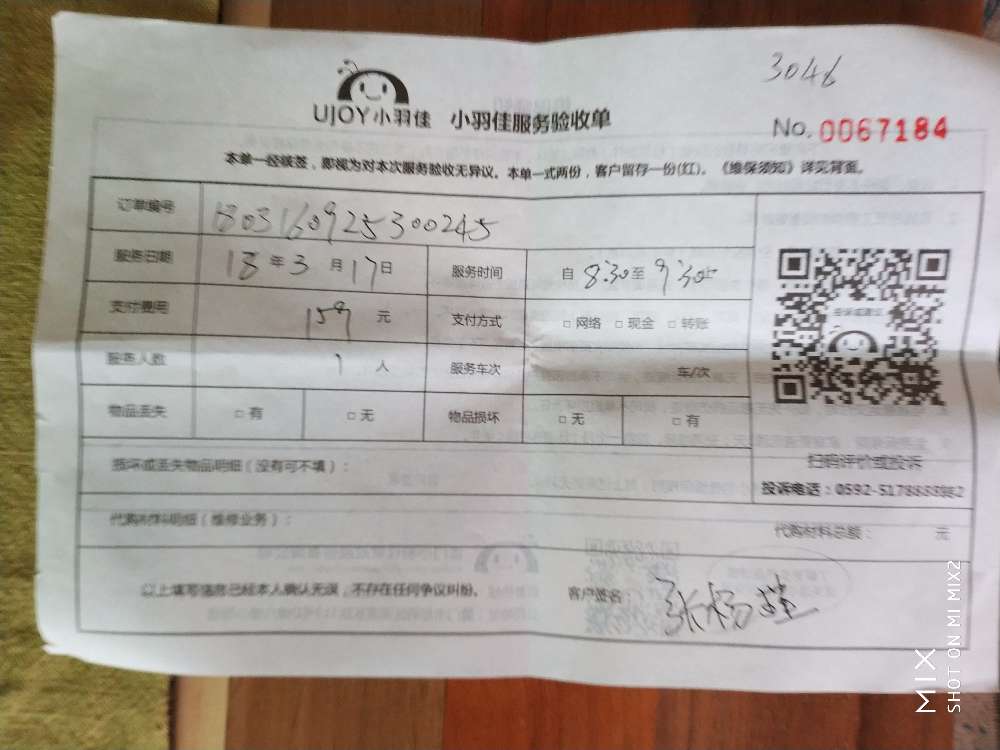 3046
UJOY小羽佳 小羽佳服务验收单
No. 0067184
本单一经核签，即视为对本次服务验收无异议。本单一式两份，客户留存一份(红)。《维保须知》详见背面。
订单编号 1803160925300245
服务日期 18年3月17日 服务时间 自8:30至9:30
支付费用 159元 支付方式 □网络 □现金 □转账
服务人数 1人 服务车次 车/次
物品丢失 □有 □无 物品损坏 □无 □有
投诉或建议
扫码评价或投诉
投诉电话：0592-5178888
损坏或丢失物品明细（没有可不填）：
代购材料明细（维修业务）： 代购材料总额： 元
以上填写信息已经本人确认无误，不存在任何争议纠纷。 客户签名：张杨
MIX
SHOT ON MI MIX2